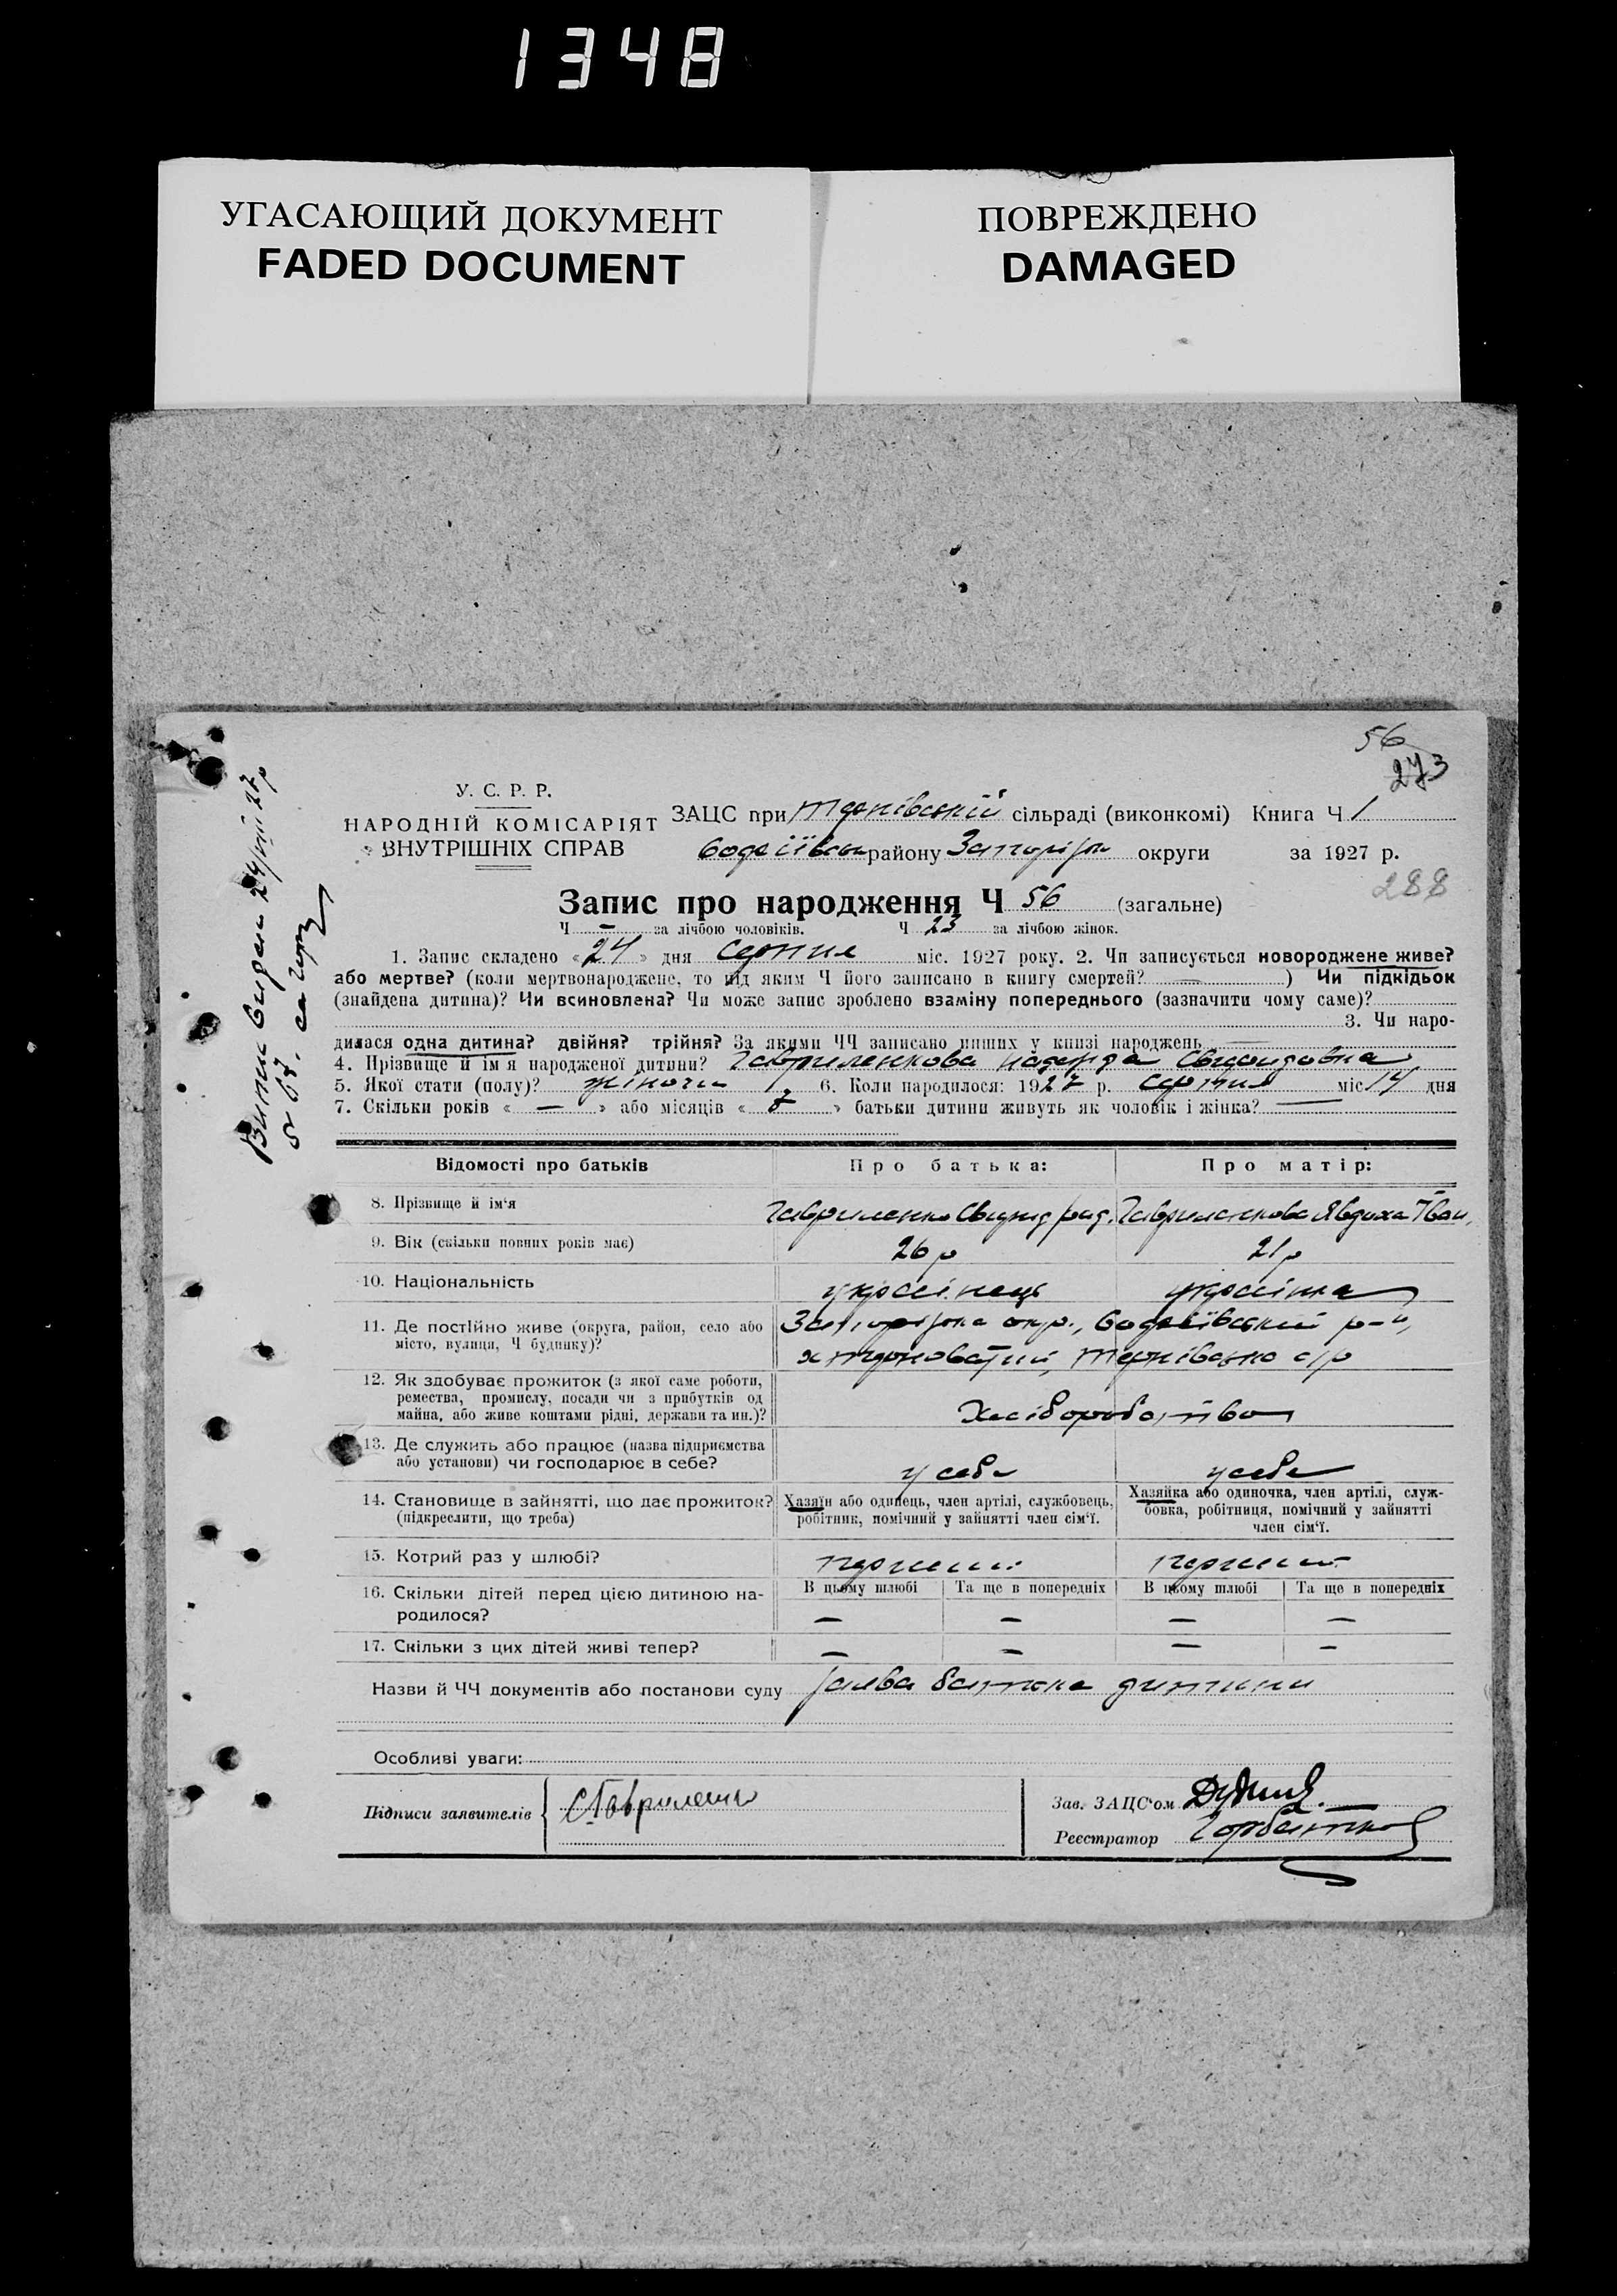 1348
УГАСАЮЩИЙ ДОКУМЕНТ
FADED DOCUMENT
ПОВРЕЖДЕНО
DAMAGED
56
273
У. С. Р. Р.
НАРОДНІЙ КОМІСАРІЯТ
ВНУТРІШНІХ СПРАВ
ЗАЦС при сільраді (виконкомі) Книга Ч 1
району округи за 1927 р.
288
Запис про народження Ч 56 (загальне)
Ч — за лічбою чоловіків. Ч 23 за лічбою жінок.
1. Запис складено « 24 » дня серпня міс. 1927 року. 2. Чи записується новороджене живе?
або мертве? (коли мертвонароджене, то під яким Ч його записано в книгу смертей? — ) Чи підкідьок
(знайдена дитина)? Чи всиновлена? Чи може запис зроблено взаміну попереднього (зазначити чому саме)?
3. Чи наро-
дилася одна дитина? двійня? трійня? За якими ЧЧ записано инших у книзі народжень —
4. Прізвище й ім'я народженої дитини? Гавриленкова Надежда
5. Якої стати (полу)? жіночи 6. Коли народилося: 1927 р. серпня міс 14 дня
7. Скільки років « — » або місяців « 8 » батьки дитини живуть як чоловік і жінка? —
Відомості про батьків
Про батька:
Про матір:
8. Прізвище й ім'я
Гавриленко
Гавриленкова Явдоха Іван.
9. Вік (скільки повних років має)
26 р
21 р
10. Національність
українець
українка
11. Де постійно живе (округа, район, село або
місто, вулиця, Ч будинку)?
Запоріжка окр., р-н,
Тернівська с/р
12. Як здобуває прожиток (з якої саме роботи,
ремества, промислу, посади чи з прибутків од
майна, або живе коштами рідні, держави та ин.)?
Хліборобство
13. Де служить або працює (назва підприємства
або установи) чи господарює в себе?
у себе
у себе
14. Становище в зайнятті, що дає прожиток?
(підкреслити, що треба)
Хазяїн або одинець, член артілі, службовець,
робітник, помічний у зайнятті член сім'ї.
Хазяйка або одиночка, член артілі, служ-
бовка, робітниця, помічний у зайнятті
член сім'ї.
15. Котрий раз у шлюбі?
перший
перший
16. Скільки дітей перед цією дитиною на-
родилося?
В цьому шлюбі Та ще в попередніх В цьому шлюбі Та ще в попередніх
— — — —
17. Скільки з цих дітей живі тепер?
— — — —
Назви й ЧЧ документів або постанови суду заява батька дитини
Особливі уваги:
Підписи заявителів С. Гавриленко
Зав. ЗАЦС'ом
Реєстратор